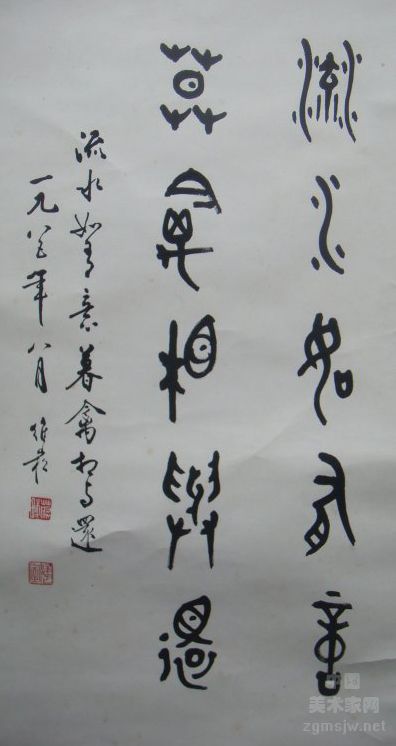 流水如有意
暮禽相與還
流水如有意暮禽相与還
一九八三年八月
中国
美术家网
zgmsjw.net